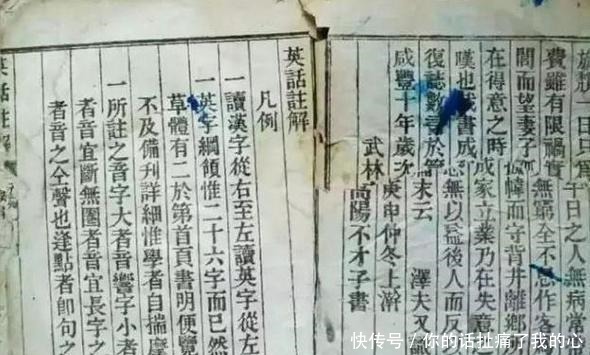 一日只爲千日之人無病常
費雖有限禍實無窮全不忌作客
閭而望妻子倚幃而守背井離鄉
在得意之時成家立業乃在失意
嘆也書成無以益後人而反
復誌數言於篇末云 澤夫又
咸豐十年歲次庚申仲冬上澣
武林高陽不才子書
英話註解
凡例
一讀漢字從右至左讀英字從左
一英字綱領惟二十六字而已然
草體有二於第首頁書明便覽
不及備刊詳細惟學者自揣摩
一所註之音字大者音響字小者
者音宜斷無圈者音宜長字之
者音之仝聲也逢點者卽句之
英話註解
快传号/你的话扯痛了我的心